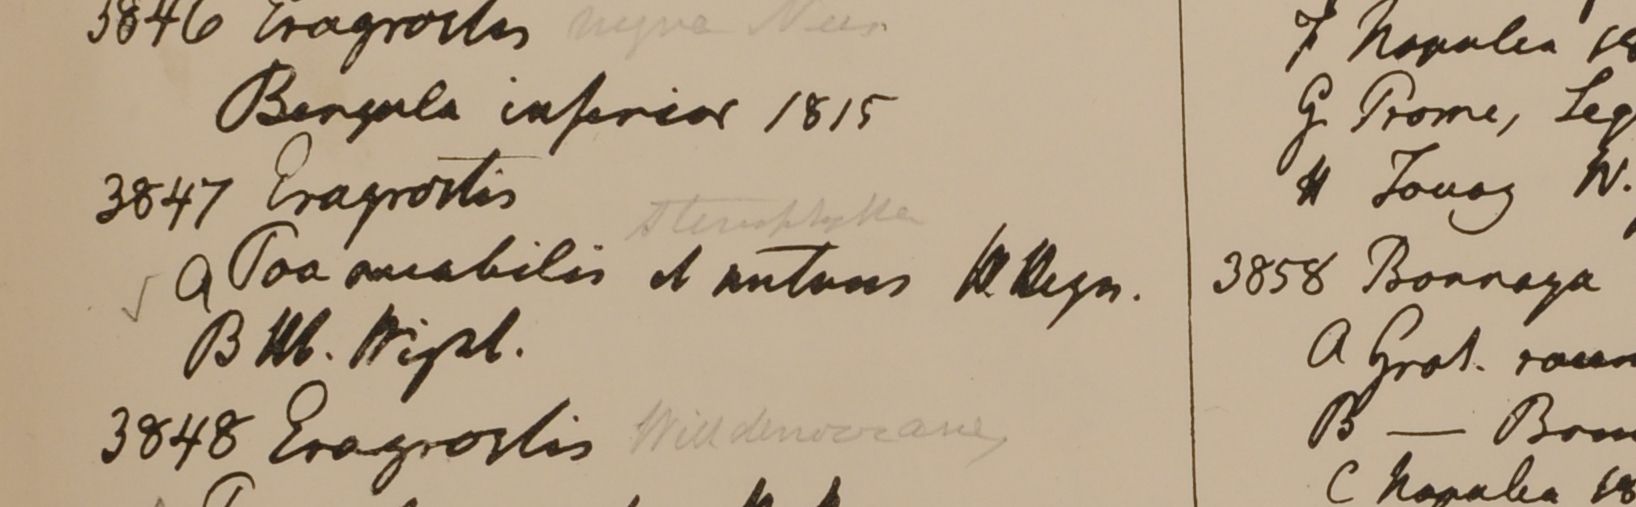 3846 Eragrostis nigra Nees
Bengala inferior 1815
3847 Eragrostis
stenophylla
A Poa amabilis et nutans H. Heyn.
B Hb. Wight.
3848 Eragrostis Willdenoviana
F Napalia 18
G Prome,
H Tavoy W.
3858 Bonnaya
A
B —
C Napalia 18